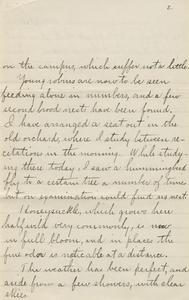 2.
on the campus, which suffer not a little.
Young robins are now to be seen
feeding alone in numbers, and a few
second brood nests have been found.
I have arranged a seat out in the
old orchard, where I study between re-
citation in the morning. While study-
ing there today, I saw a hummingbird
fly to a certain tree a number of times
but on examination could find no nest.
Honeysuckle, which grows here
half wild very commonly, is now
in full bloom, and in places the
fine odor is noticable at a distance.
The weather has been perfect, and
aside from a few showers, with clear
skies.